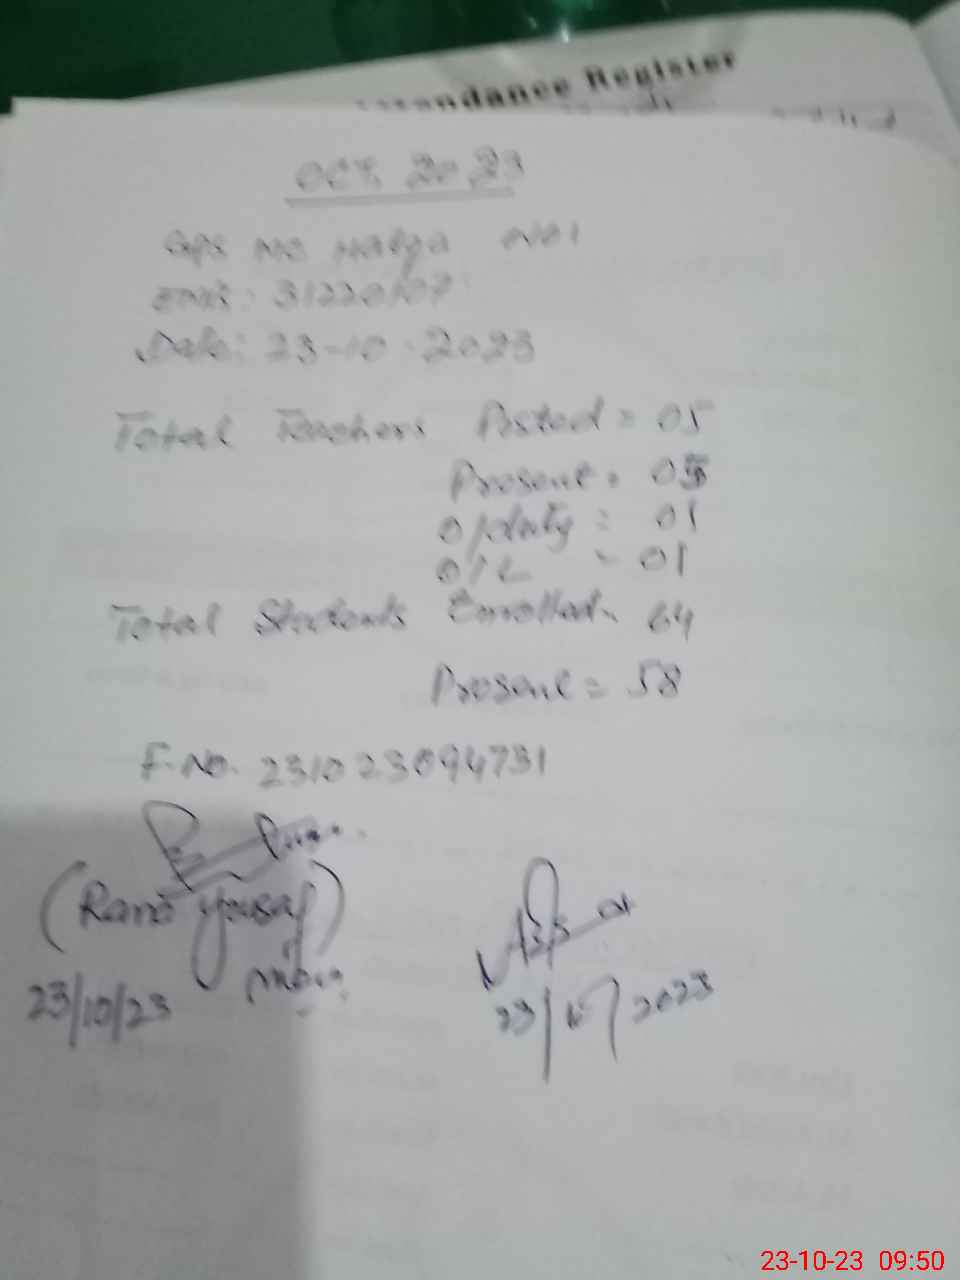 Attendance Register
OCT, 2023
GPS MC Halqa No 1
EMIS: 31220107
Date: 23-10-2023
Total Teachers Posted = 05
Present = 03
O/duty = 01
O/L = 01
Total Students Enrolled = 64
Present = 58
F. No. 231023094731
(Rana Yousaf)
23/10/23
23/10/2023
23-10-23 09:50